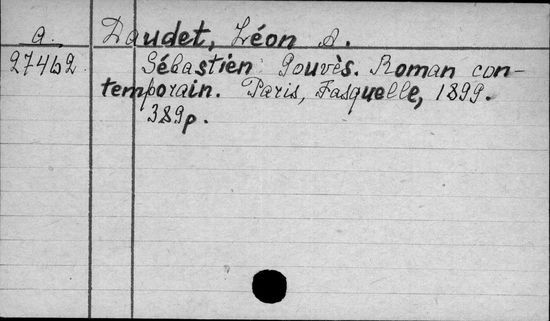 a. Daudet, Léon A.
27462 Sébastien Gouvès. Roman con-
temporain. Paris, Fasquelle, 1899.
389p.